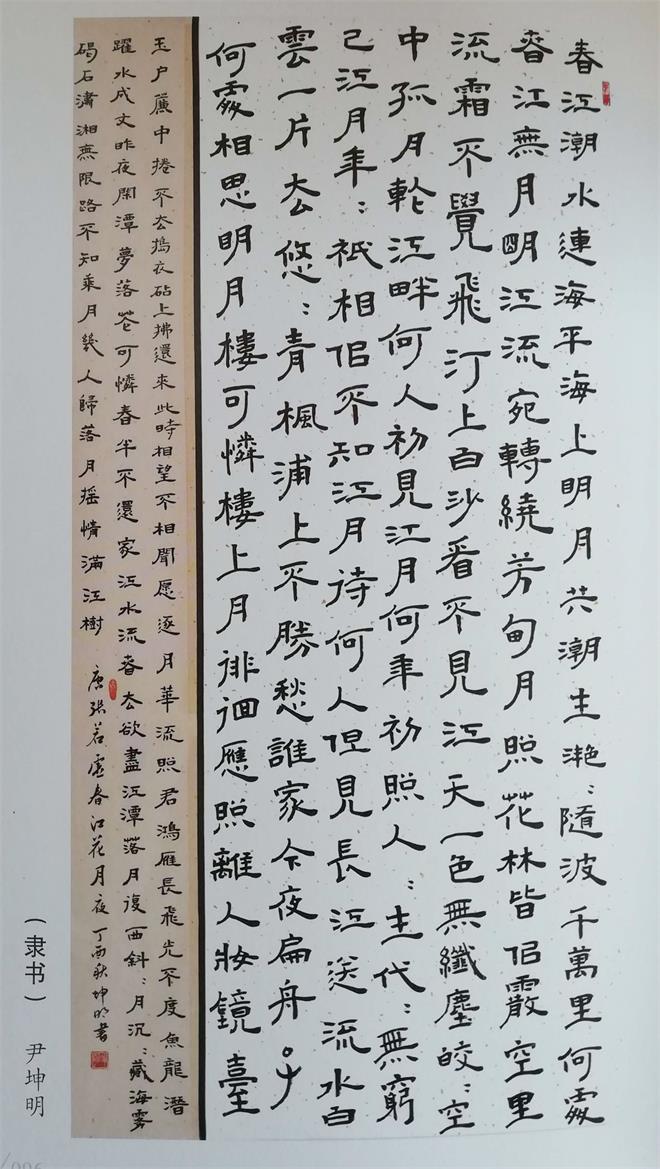 春江潮水連海平海上明月共潮生灔：隨波千萬里何處
春江無月明江流宛轉繞芳甸月照花林皆似霰空里
流霜不覺飛汀上白沙看不見江天一色無纖塵皎：空
中孤月輪江畔何人初見江月何年初照人：生代：無窮
已江月年：祇相似不知江月待何人但見長江送流水白
雲一片去悠：青楓浦上不勝愁誰家今夜扁舟子
何處相思明月樓可憐樓上月徘徊應照離人妝鏡臺
玉户簾中捲不去搗衣砧上拂還来此時相望不相聞愿逐月華流照君鴻雁長飛光不度魚龍潛
躍水成文昨夜閑潭夢落花可憐春半不還家江水流春去欲盡江潭落月復西斜：月沉：藏海雾
碣石瀟湘無限路不知乘月幾人歸落月摇情滿江樹 唐張若虛春江花月夜 丁酉秋坤明書
（隶书） 尹坤明